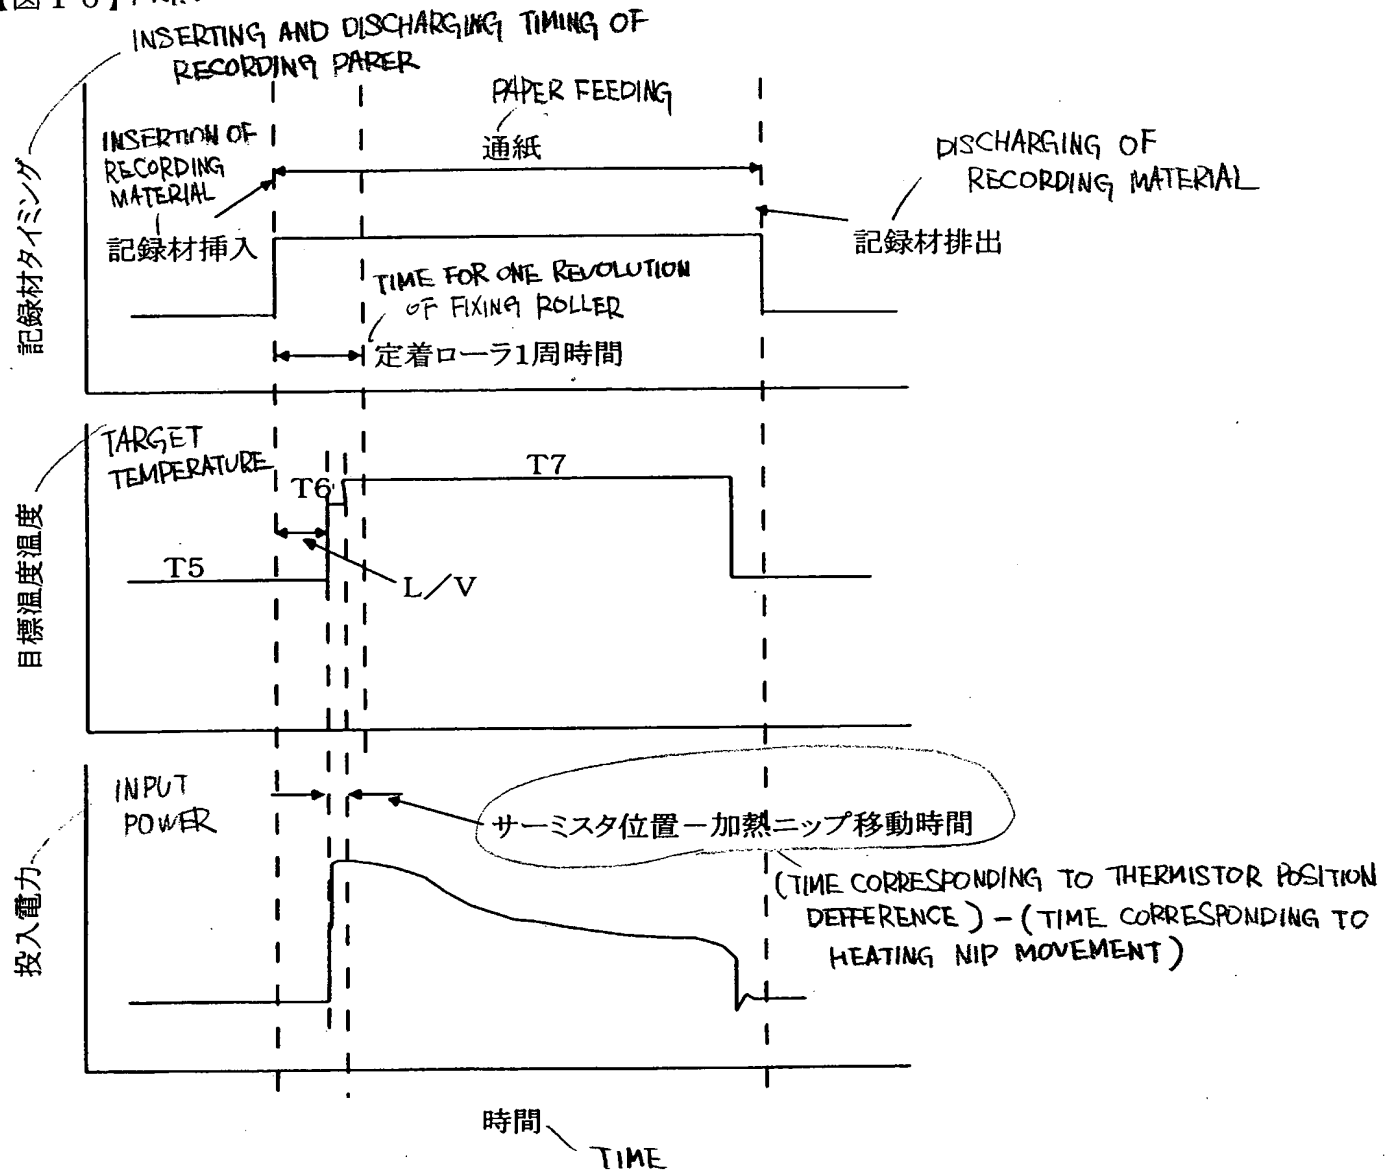 INSERTING AND DISCHARGING TIMING OF
RECORDING PAPER
PAPER FEEDING
通紙
INSERTION OF
RECORDING
MATERIAL
記録材挿入
DISCHARGING OF
RECORDING MATERIAL
記録材排出
記録材タイミング
TIME FOR ONE REVOLUTION
OF FIXING ROLLER
定着ローラ1周時間
TARGET
TEMPERATURE
T6
T7
T5
L/V
目標温度温度
INPUT
POWER
サーミスタ位置－加熱ニップ移動時間
(TIME CORRESPONDING TO THERMISTOR POSITION
DEFFERENCE) - (TIME CORRESPONDING TO
HEATING NIP MOVEMENT)
投入電力
時間
TIME